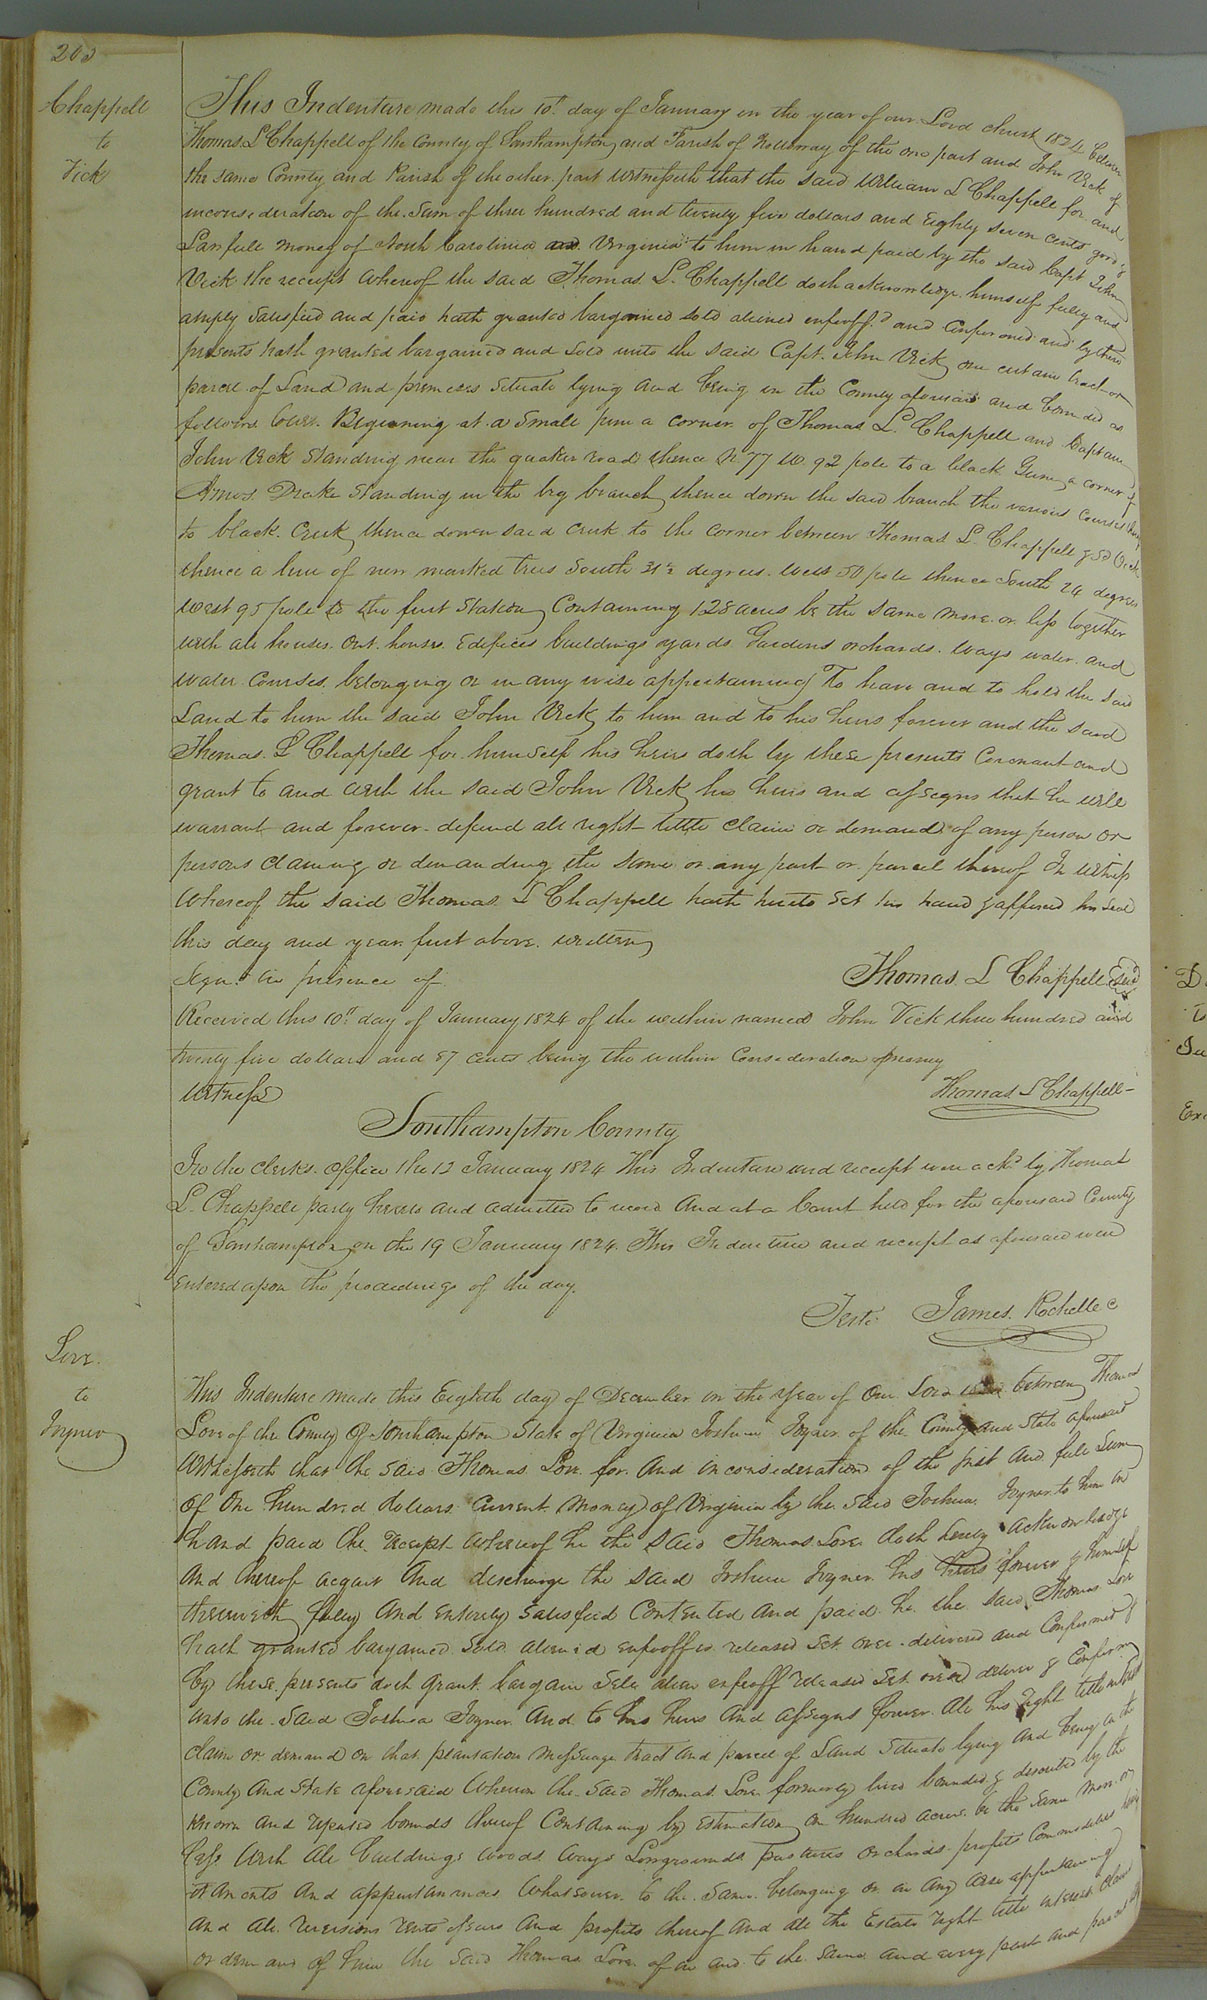 Chappell
to
Vick
This Indenture made this 10th day of January in the year of our Lord Christ 1824 between
Thomas L Chappell of the County of Southampton and Parish of Nottoway of the one part and John Vick of
the same County and Parish of the other part Witnesseth that the said William L Chappell for and
inconsideration of the Sum of three hundred and twenty five dollars and Eighty seven cents good &
Lawfull money of North Carolina and Virginia to him in hand paid by the said Capt John
Vick the receipt whereof the said Thomas L. Chappell doth acknowledge himself fully and
amply satisfied and paid hath granted bargained sold aliened enfeoff.d and Confirmed and by these
presents hath granted bargained and sold unto the said Capt. John Vick one certain tract or
parcel of Land and premeses situate lying and being in the County aforesaid and bounded as
follows towit. Begining at a small pine a corner of Thomas L. Chappell and Captain
John Vick standing near the quaker road thence N. 77 W. 92 pole to a black Gum a corner of
Amos Drake standing in the big branch thence down the said branch the various courses
to black Creek thence down said Creek to the corner between Thomas L. Chappell & sd Vick
thence a line of new marked trees South 31½ degrees West 50 pole thence South 24 degrees
West 95 pole to the first Station Containing 128 acres be the same more or less together
with all houses. Out houses. Edifices buildings yards Gardens orchards. Ways water and
Water Courses. belonging or in any wise appertaining To have and to hold the said
Land to him the said John Vick to him and to his heirs forever and the said
Thomas. L Chappell for himself his heirs doth by these presents Covenant and
grant to and with the said John Vick his heirs and assigns that he will
warrant and forever defend all right tittle claim or demand of any person or
persons claiming or demanding the same or any part or parcel thereof In witness
Whereof the said Thomas. L Chappell hath hereto set his hand & affixed his seal
this day and year first above written
Sign.d in presence of
Thomas. L Chappell Seal
Received this 10th day of January 1824 of the within named John Vick three hundred and
twenty five dollars and 87 cents being the within Consideration money
Witness
Thomas L Chappell
Southampton County
In the Clerks office the 12 January 1824 This Indenture and receipt were ackd by Thomas
L. Chappell party hereto and admitted to record And at a Court held for the aforesaid County
of Southampton on the 19 January 1824 This Indenture and receipt as aforesaid were
entered upon the proceedings of the day.
Teste James. Rochelle C
Love.
to
Joyner
This Indenture made this Eighth day of December in the Year of Our Lord between Thomas
Love of the County Of Southampton State of Virginia Joshua Joyner of the County and State aforesaid
Witnesseth that the said Thomas Love for And inconsideration of the just And full Sum
Of One hundred dollars Current Money of Virginia by the said Joshua Joyner to him in
hand paid the receipt whereof he the said Thomas Love doth hereby acknowledge
And thereof acquit And discharge the said Joshua Joyner his heirs forever & himself
therewith fully And entirely satisfied Contented And paid he the said Thomas Love
hath granted bargained Sold aliened enfeoffed released Set over delivered and Confirmed &
by these presents doth grant bargain Sele alien enfeoff released Set over deliver & Confirm
unto the said Joshua Joyner And to his heirs And assigns forever All his right title interest
claim or demand on that plantation Messuage tract and parcel of Land situate lying And being in the
County And State aforesaid Wherein the said Thomas Love formerly lived bounded & described by the
known And reputed bounds thereof Containing by Estimation one hundred acres be the Same more or
less With All buildings Woods Ways pastures Orchards profits Commodities
And appurtenances Whatsoever to the same belonging or in any wise appertaining
And all reversions rents Issues And profits thereof And all the Estate right title interest claim
or demand of him the said Thomas Love of in and to the same and every part and parcel